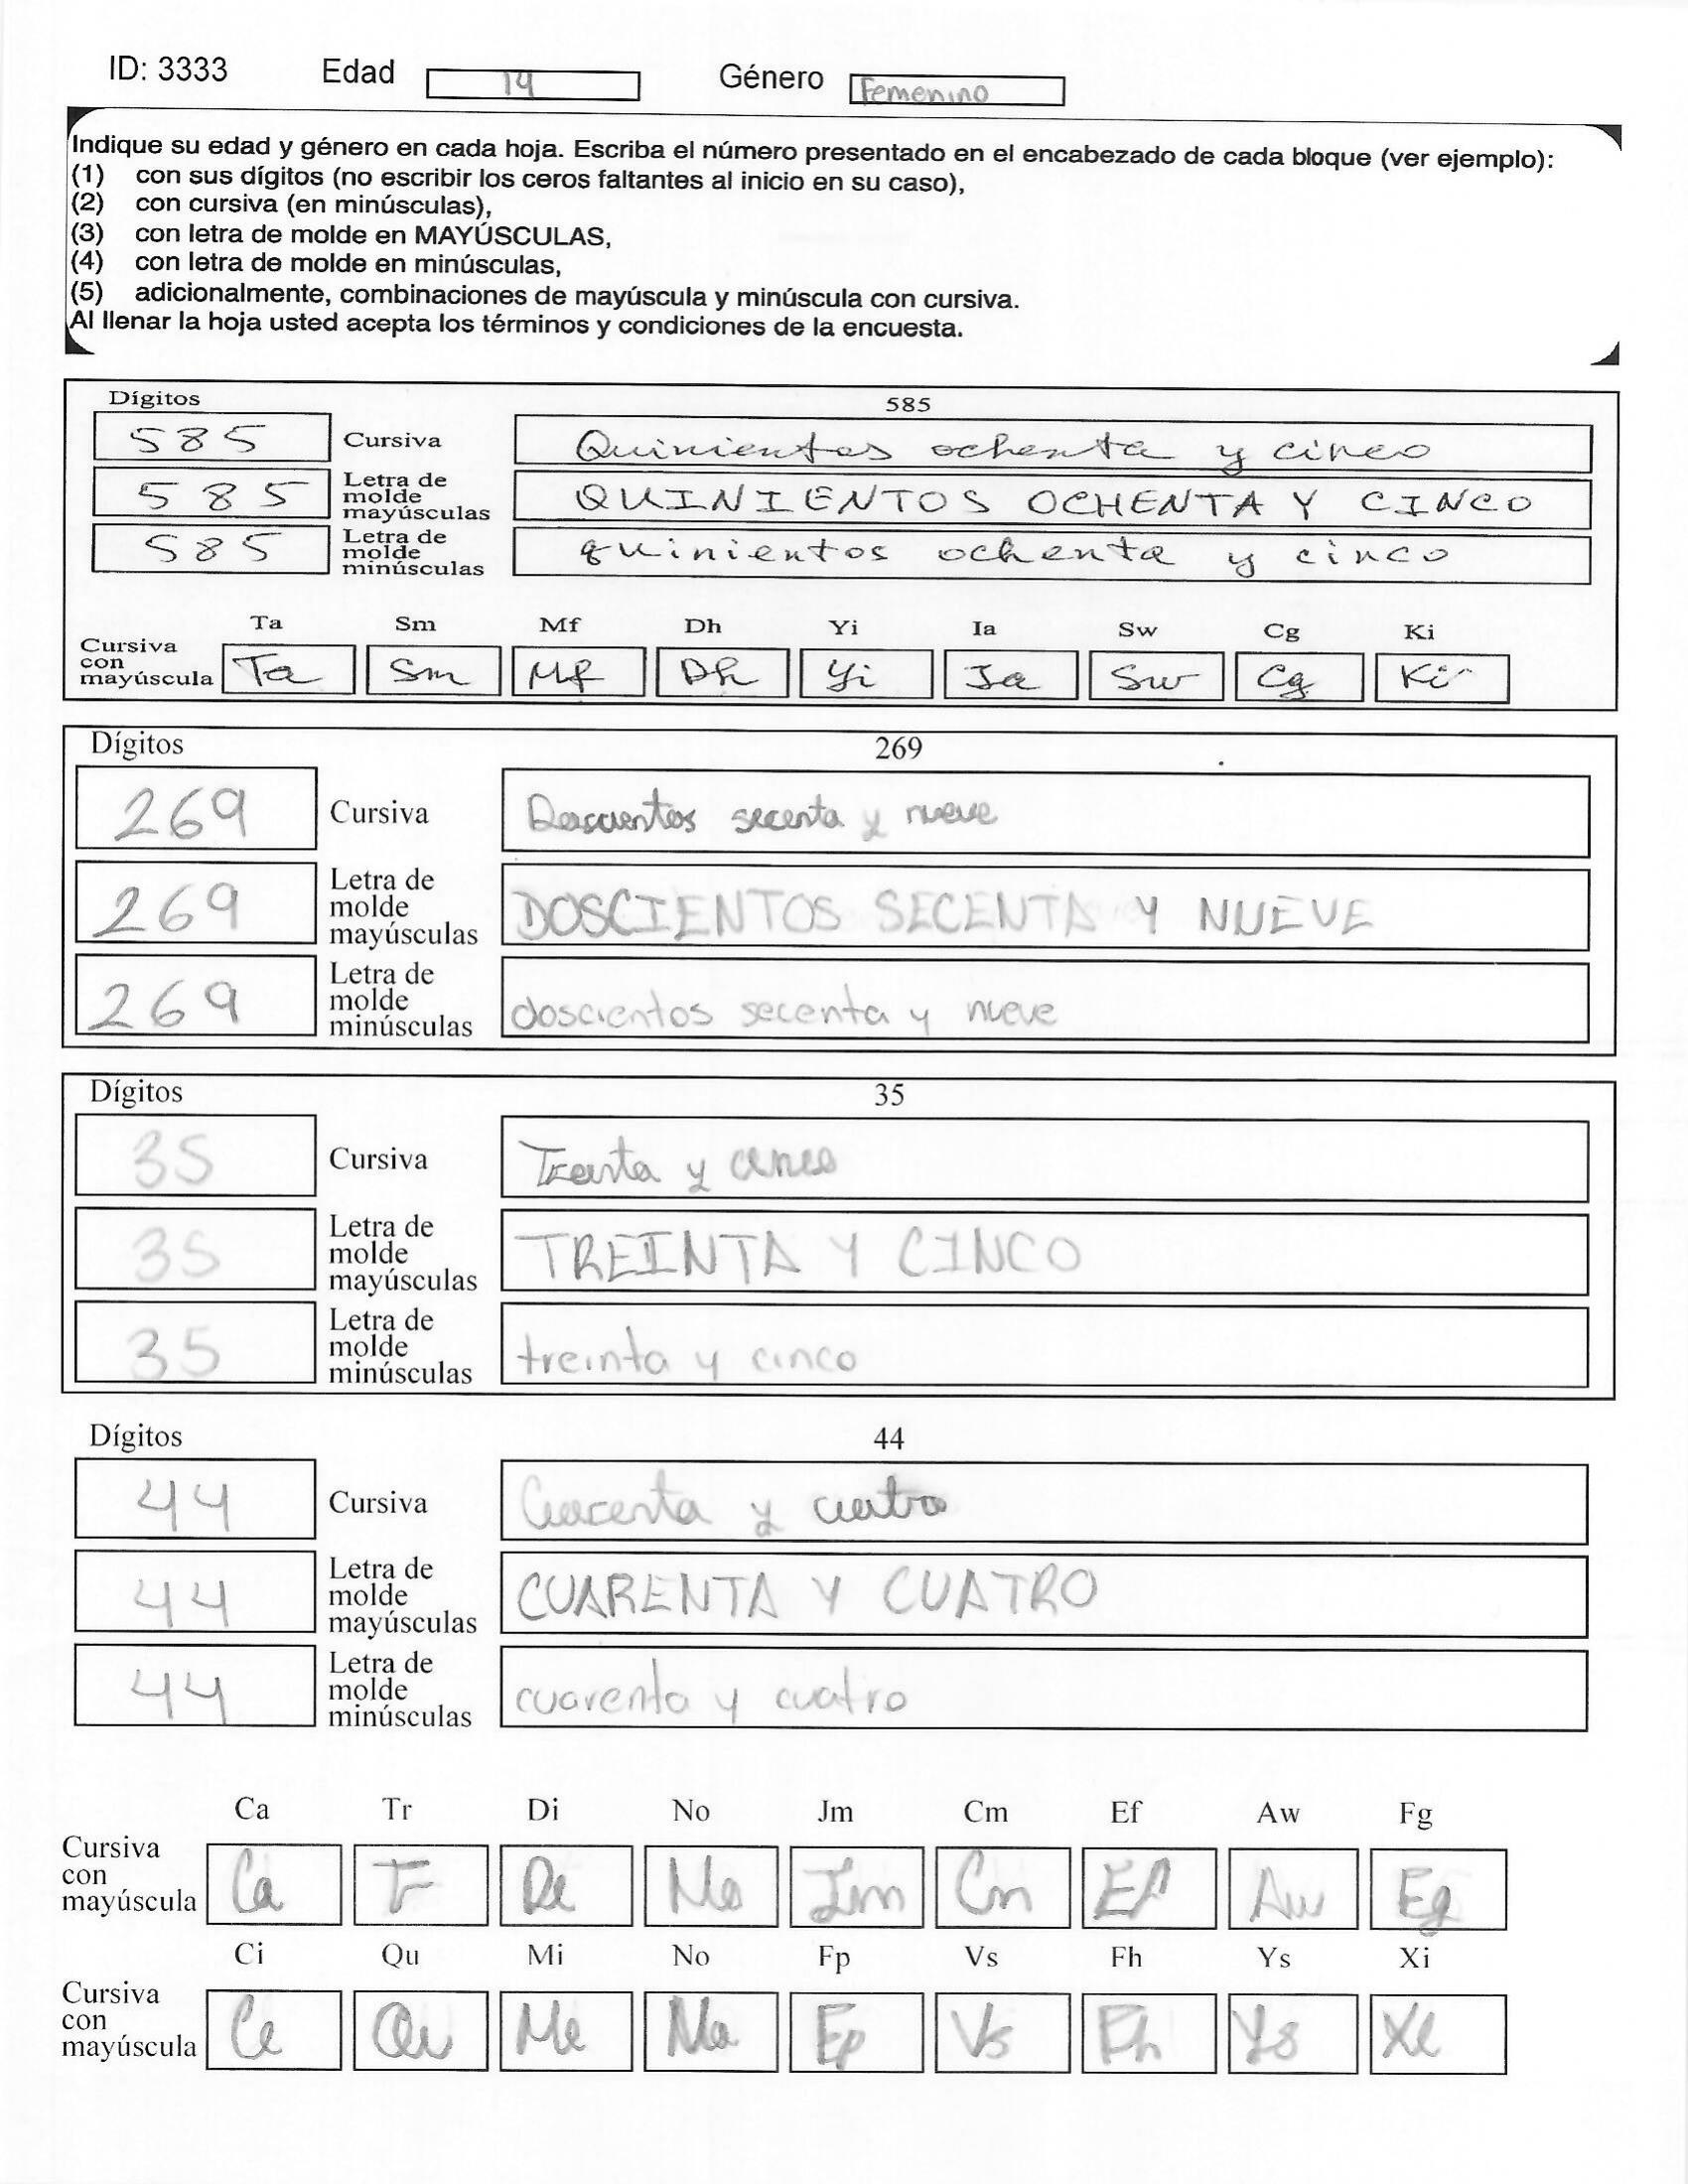 ID: 3333 Edad 14 Género Femenino
Indique su edad y género en cada hoja. Escriba el número presentado en el encabezado de cada bloque (ver ejemplo):
(1) con sus dígitos (no escribir los ceros faltantes al inicio en su caso),
(2) con cursiva (en minúsculas),
(3) con letra de molde en MAYÚSCULAS,
(4) con letra de molde en minúsculas,
(5) adicionalmente, combinaciones de mayúscula y minúscula con cursiva.
Al llenar la hoja usted acepta los términos y condiciones de la encuesta.
Dígitos 585
585 Cursiva Quinientos ochenta y cinco
585 Letra de molde mayúsculas QUINIENTOS OCHENTA Y CINCO
585 Letra de molde minúsculas quinientos ochenta y cinco
Ta Sm Mf Dh Yi Ia Sw Cg Ki
Cursiva con mayúscula Ta Sm Mf Dh Yi Ia Sw Cg Ki
Dígitos 269
269 Cursiva Doscientos secenta y nueve
269 Letra de molde mayúsculas DOSCIENTOS SECENTA Y NUEVE
269 Letra de molde minúsculas doscientos secenta y nueve
Dígitos 35
35 Cursiva Treinta y cinco
35 Letra de molde mayúsculas TREINTA Y CINCO
35 Letra de molde minúsculas treinta y cinco
Dígitos 44
44 Cursiva Cuarenta y cuatro
44 Letra de molde mayúsculas CUARENTA Y CUATRO
44 Letra de molde minúsculas cuarenta y cuatro
Ca Tr Di No Jm Cm Ef Aw Fg
Cursiva con mayúscula Ca Tr Di No Jm Cm Ef Aw Fg
Ci Qu Mi No Fp Vs Fh Ys Xi
Cursiva con mayúscula Ci Qu Mi No Fp Vs Fh Ys Xi